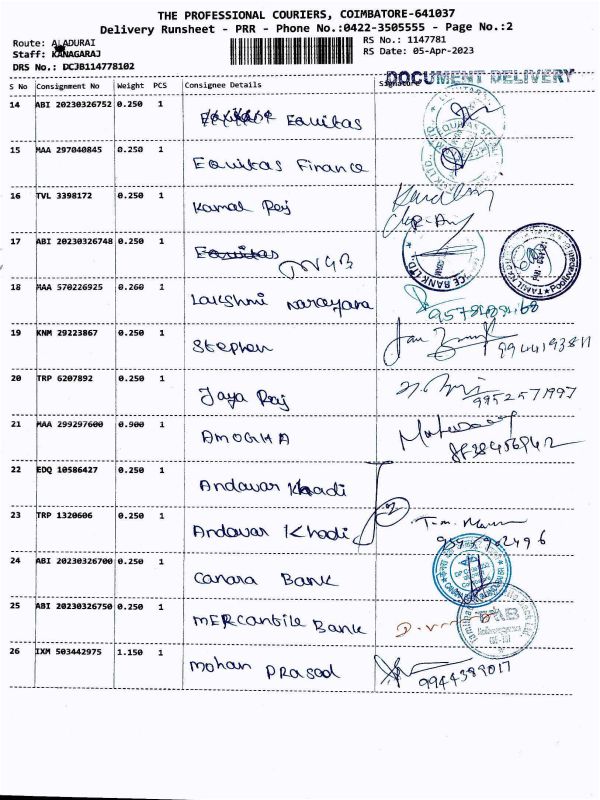 THE PROFESSIONAL COURIERS, COIMBATORE-641037
Delivery Runsheet - PRR - Phone No.:0422-3505555 - Page No.:2
Route: ALADURAI
RS No.: 1147781
Staff: KANAGARAJ
RS Date: 05-Apr-2023
DRS No.: DCJB114778102
DOCUMENT DELIVERY
S No Consignment No Weight PCS Consignee Details Signature
14 ABI 20230326752 0.250 1 Equitas
15 MAA 297040845 0.250 1 Equitas Finance
16 TVL 3398172 0.250 1 Kamal Raj
17 ABI 20230326748 0.250 1
18 MAA 570226925 0.260 1 Lakshmi Narayana
19 KNM 29223867 0.250 1 Stephen
20 TRP 6207892 0.250 1 Jaya Raj 9952571997
21 MAA 299297600 0.900 1 AMOGHA
22 EDQ 10586427 0.250 1 Andavar Khadi
23 TRP 1320606 0.250 1 Andavar Khadi 2
24 ABI 20230326700 0.250 1 Canara Bank
25 ABI 20230326750 0.250 1 Mercantile Bank
26 IXM 503442975 1.150 1 Mohan Prasad 9944389017